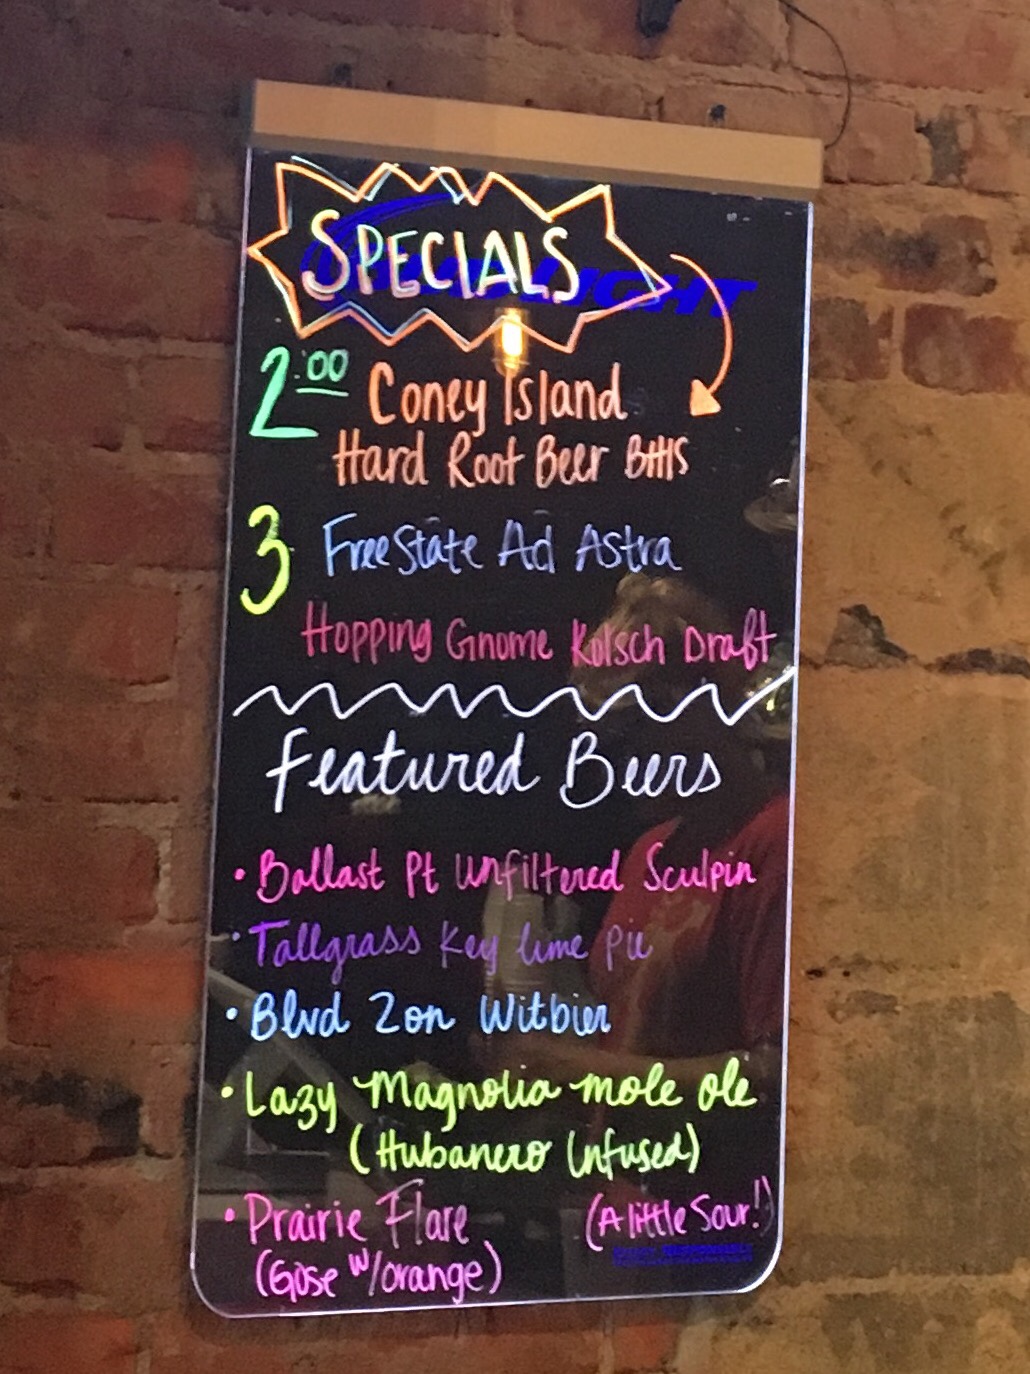 SPECIALS
LIGHT
2.00 Coney Island
Hard Root Beer Bttls
3 FreeState Ad Astra
Hopping Gnome Kolsch Draft
Featured Beers
• Ballast Pt Unfiltered Sculpin
• Tallgrass Key lime pie
• Blvd Zon Witbier
• Lazy Magnolia mole ole
(Hubanero Infused)
• Prairie Flare (A little Sour!)
(Gose w/orange)